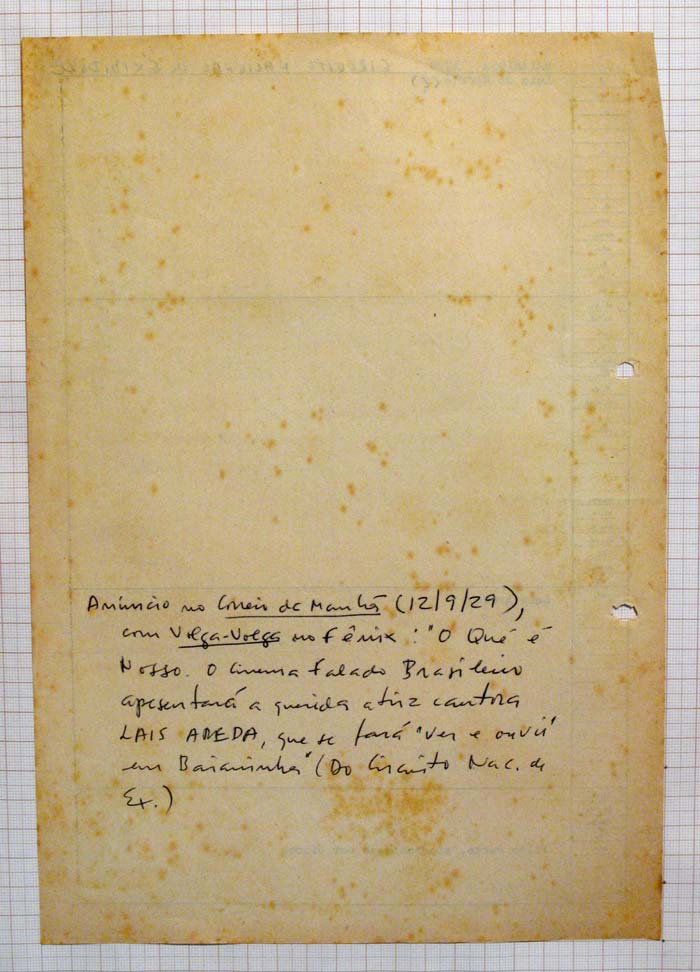 Anúncio no Correio da Manhã (12/9/29),
com Volga-Volga no Fênix: "O Quê é
Nosso. O Cinema Falado Brasileiro
apresentará a querida atriz cantora
LAIS AREDA, que se fará "ver e ouvir"
em Baianinha" (Do Circuito Nac. de
Ex.)